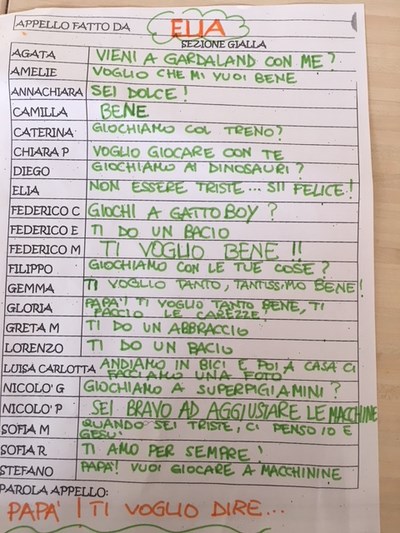 APPELLO FATTO DA ELIA
SEZIONE GIALLA
AGATA VIENI A GARDALAND CON ME?
AMELIE VOGLIO CHE MI VUOI BENE
ANNACHIARA SEI DOLCE!
CAMILLA BENE
CATERINA GIOCHIAMO COL TRENO?
CHIARA P VOGLIO GIOCARE CON TE
DIEGO GIOCHIAMO AI DINOSAURI?
ELIA NON ESSERE TRISTE... SII FELICE!
FEDERICO C GIOCHI A GATTO BOY?
FEDERICO E TI DO UN BACIO
FEDERICO M TI VOGLIO BENE !!
FILIPPO GIOCHIAMO CON LE TUE COSE?
GEMMA TI VOGLIO TANTO, TANTISSIMO BENE!
GLORIA PAPA'! TI VOGLIO TANTO BENE, TI
FACCIO LE CAREZZE!
GRETA M TI DO UN ABBRACCIO
LORENZO TI DO UN BACIO
LUISA CARLOTTA ANDIAMO IN BICI E POI A CASA CI
FACCIAMO UNA FOTO
NICOLO' G GIOCHIAMO A SUPERPIGIAMINI?
NICOLO' P SEI BRAVO AD AGGIUSTARE LE MACCHINE
SOFIA M QUANDO SEI TRISTE, CI PENSO IO E
GESU'
SOFIA R TI AMO PER SEMPRE
STEFANO PAPA'! VUOI GIOCARE A MACCHININE
PAROLA APPELLO:
PAPA'! TI VOGLIO DIRE...